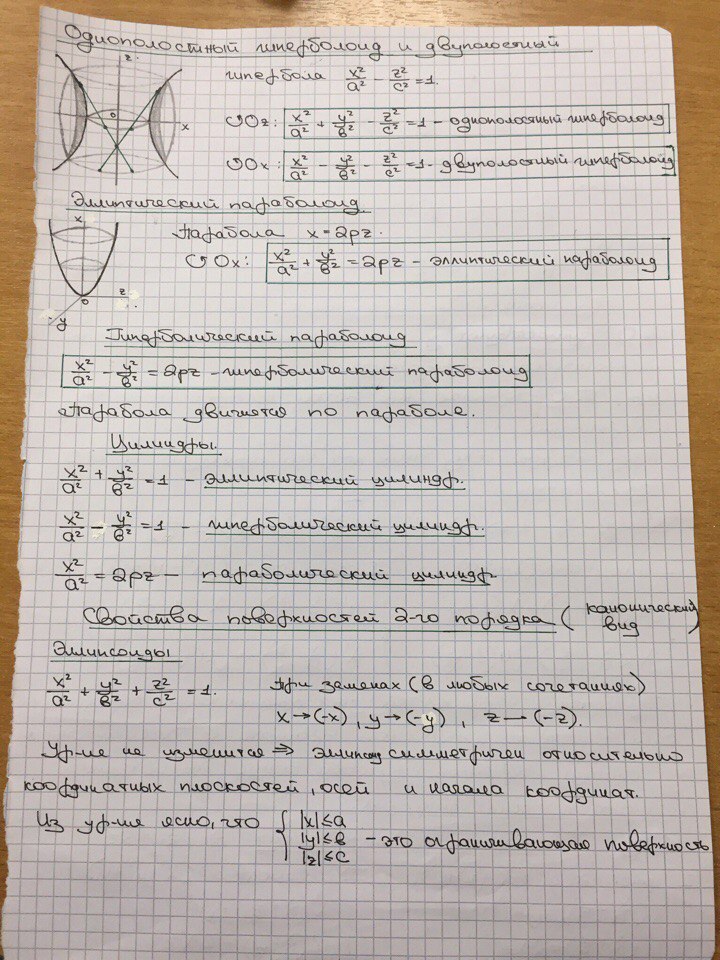 Однополостный гиперболоид и двуполостный
гипербола x²/a² - z²/c² = 1.
z
0
x
↺Oz: x²/a² + y²/b² - z²/c² = 1 - однополостный гиперболоид
↺Ox: x²/a² - y²/b² - z²/c² = 1 - двуполостный гиперболоид
Эллиптический параболоид
x
Парабола x = 2pz.
↺Ox: x²/a² + y²/b² = 2pz - эллиптический параболоид
0
z
y
Гиперболический параболоид
x²/a² - y²/b² = 2pz - гиперболический параболоид
Парабола движется по параболе.
Цилиндры.
x²/a² + y²/b² = 1 - эллиптический цилиндр.
x²/a² - y²/b² = 1 - гиперболический цилиндр.
x²/a² = 2pz - параболический цилиндр
Свойства поверхностей 2-го порядка (канонический вид)
Эллипсоиды
x²/a² + y²/b² + z²/c² = 1. При заменах (в любых сочетаниях)
x→(-x), y→(-y), z→(-z).
Ур-ие не изменится ⇒ эллипсоид симметричен относительно
координатных плоскостей, осей и начала координат.
Из ур-ия ясно, что { |x|≤a |y|≤b |z|≤c - это ограничивающая поверхность